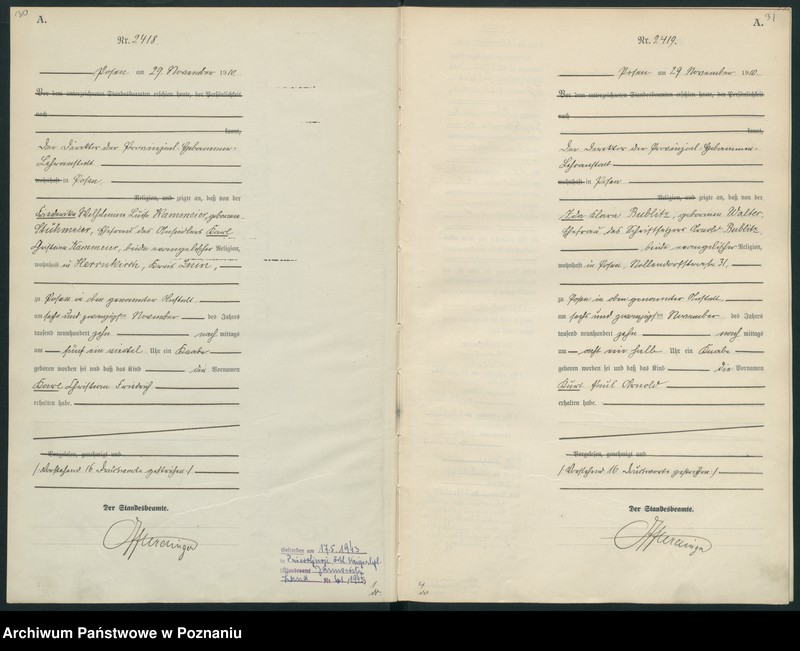 130
A.
Nr. 2418.
Posen am 29. November 1910.
Vor dem unterzeichneten Standesbeamten erschien heute, der Persönlichkeit
nach
kannt,
Der Direktor der Provinzial-Hebammen-
Lehranstalt
wohnhaft in Posen,
Religion, und zeigte an, daß von der
Friederike Wilhelmine Luise Kammeier, geborenen
Stühmeier, Ehefrau des Ansiedlers Karl
Christian Kammeier, beide evangelischer Religion,
wohnhaft in Herrnkirch, Kreis Znin,
zu Posen in oben genannter Anstalt
am sechs und zwanzigsten November des Jahres
tausend neunhundert zehn nach mittags
um fünf ein viertel Uhr ein Knabe
geboren worden sei und daß das Kind die Vornamen
Karl Christian Friedrich
erhalten habe.
Vorgelesen, genehmigt und
/ Vorstehend 16 Druckworte gestrichen /
Der Standesbeamte.
Gestorben am 17.5.1943
Standesamt
31
A.
Nr. 2419.
Posen am 29 November 1910.
Vor dem unterzeichneten Standesbeamten erschien heute, der Persönlichkeit
nach
kannt,
Der Direktor der Provinzial-Hebammen-
Lehranstalt
wohnhaft in Posen
Religion, und zeigte an, daß von der
Ida Klara Bublitz, geborenen Walter,
Ehefrau des Schriftsetzers Arnold Bublitz,
beide evangelischer Religion,
wohnhaft in Posen, Nollendorfstrasse 31,
zu Posen in oben genannter Anstalt
am sechs und zwanzigsten November des Jahres
tausend neunhundert zehn nach mittags
um acht ein halb Uhr ein Knabe
geboren worden sei und daß das Kind die Vornamen
Kurt Emil Arnold
erhalten habe.
Vorgelesen, genehmigt und
/ Vorstehend 16 Druckworte gestrichen /
Der Standesbeamte.
Archiwum Państwowe w Poznaniu